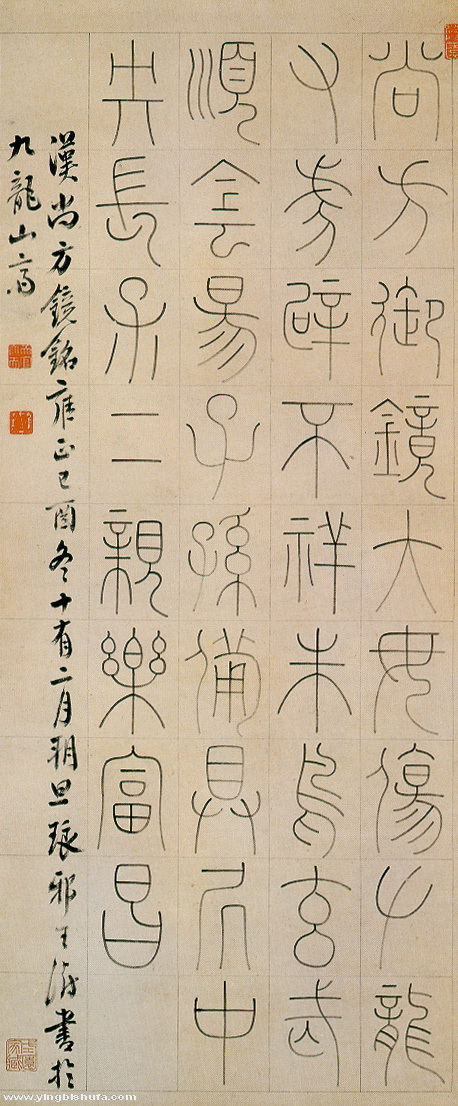 尚方御鏡大毋傷𠂇龍
又虎辟不祥朱鳥玄武
順侌昜子孫備具凥中
央長保二親樂富昌
漢尚方鏡銘雍正己酉冬十有二月朔旦琅邪王澍書於
九龍山齋
www.yingbishufa.com